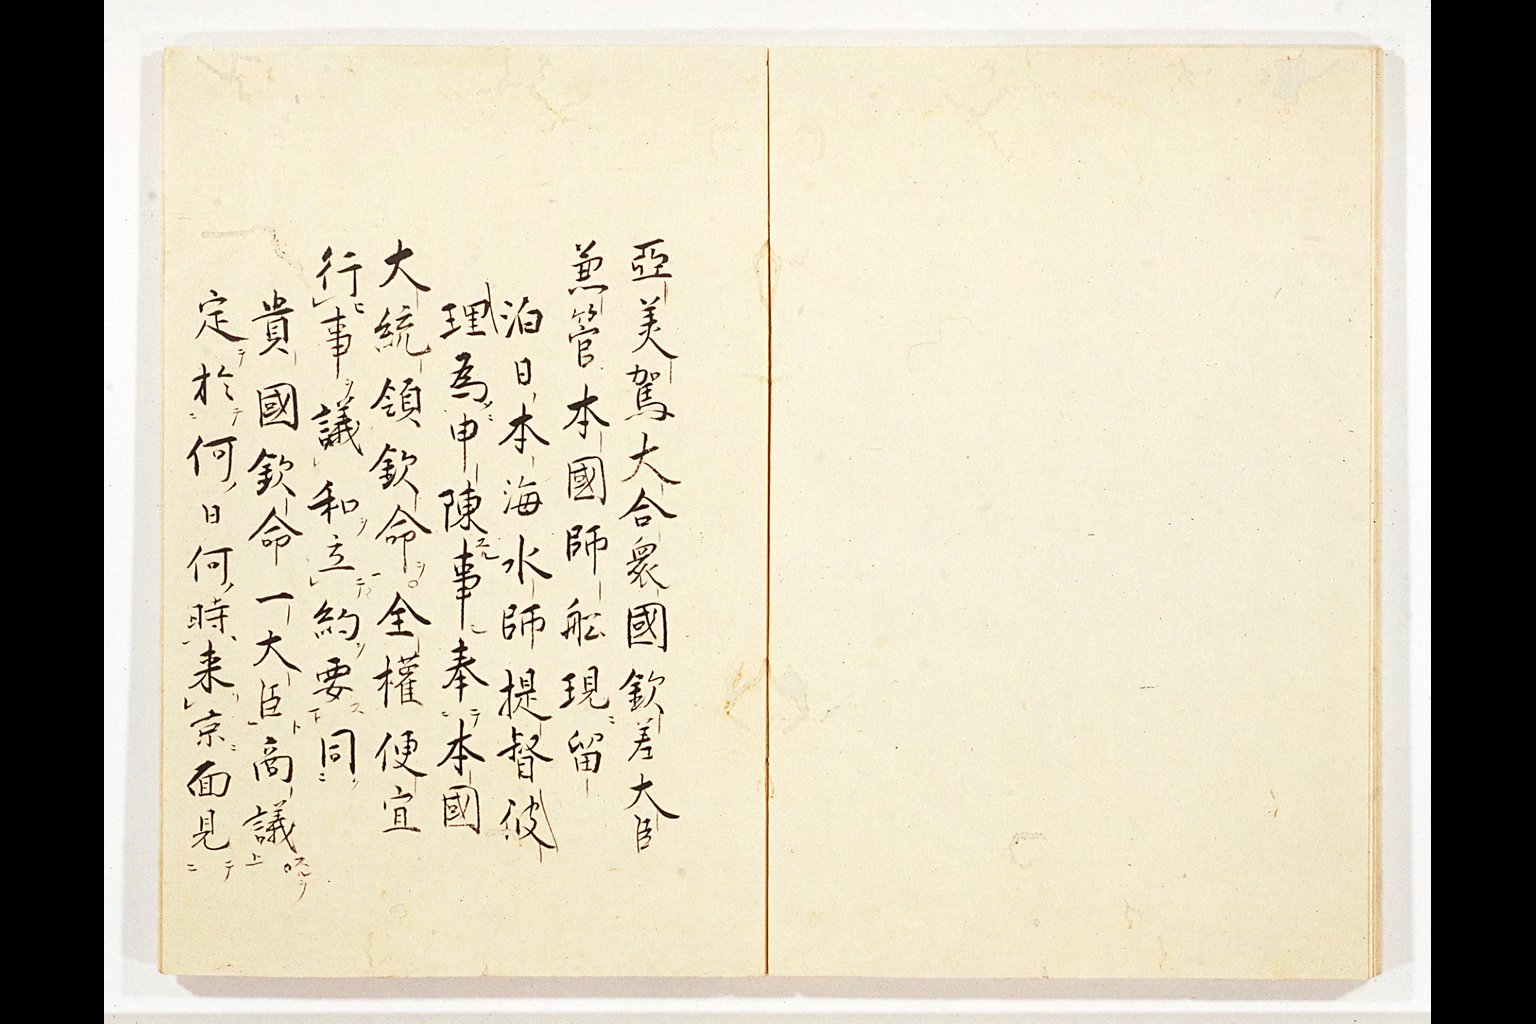 亞美駕大合衆國欽差大臣
兼管本國師舩現留
泊日本海水師提督彼
理為申陳事奉本國
大統領欽命全權便宜
行事議和立約要同
貴國欽命一大臣商議
定於何日何時来京面見